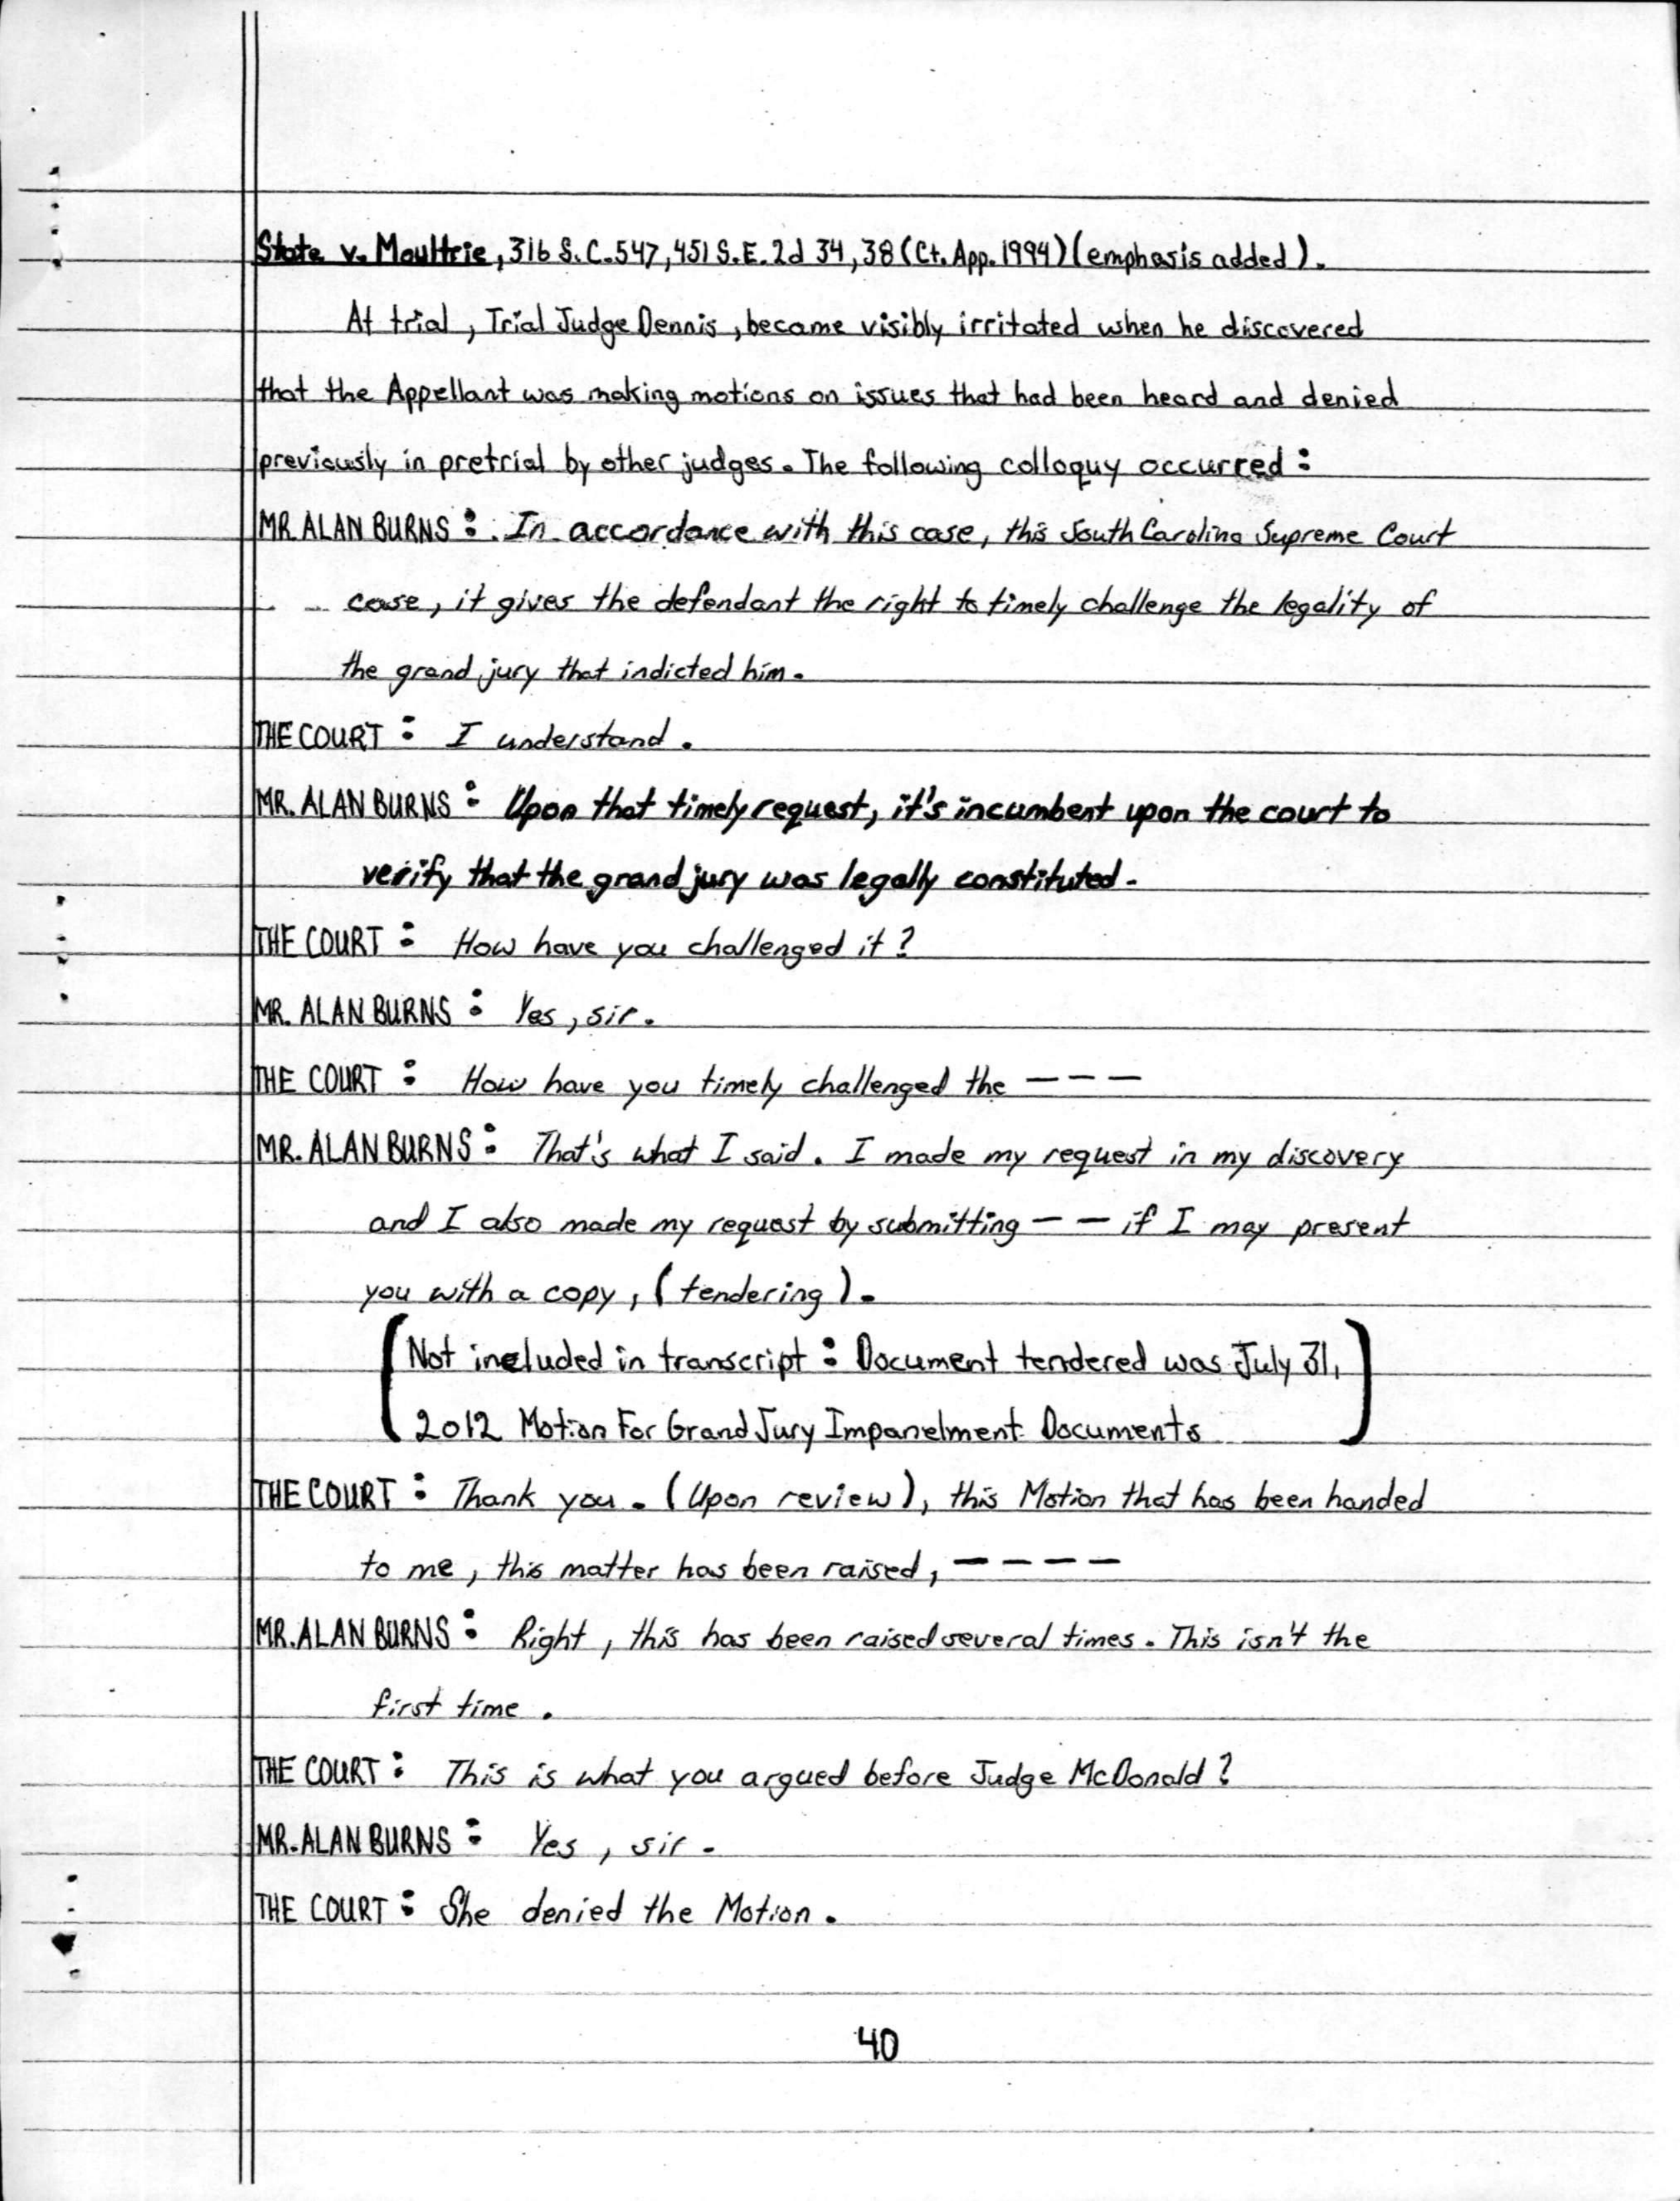 State v. Moultrie, 316 S.C. 547, 451 S.E. 2d 34, 38 (Ct. App. 1994) (emphasis added).
At trial, Trial Judge Dennis, became visibly irritated when he discovered
that the Appellant was making motions on issues that had been heard and denied
previously in pretrial by other judges. The following colloquy occurred:
MR. ALAN BURNS: In accordance with this case, this South Carolina Supreme Court
case, it gives the defendant the right to timely challenge the legality of
the grand jury that indicted him.
THE COURT: I understand.
MR. ALAN BURNS: Upon that timely request, it's incumbent upon the court to
verify that the grand jury was legally constituted.
THE COURT: How have you challenged it?
MR. ALAN BURNS: Yes, sir.
THE COURT: How have you timely challenged the - - -
MR. ALAN BURNS: That's what I said. I made my request in my discovery
and I also made my request by submitting - - if I may present
you with a copy, (tendering).
(Not included in transcript: Document tendered was July 31,
2012 Motion For Grand Jury Impanelment Documents)
THE COURT: Thank you. (Upon review), this Motion that has been handed
to me, this matter has been raised, - - - -
MR. ALAN BURNS: Right, this has been raised several times. This isn't the
first time.
THE COURT: This is what you argued before Judge McDonald?
MR. ALAN BURNS: Yes, sir.
THE COURT: She denied the Motion.
40